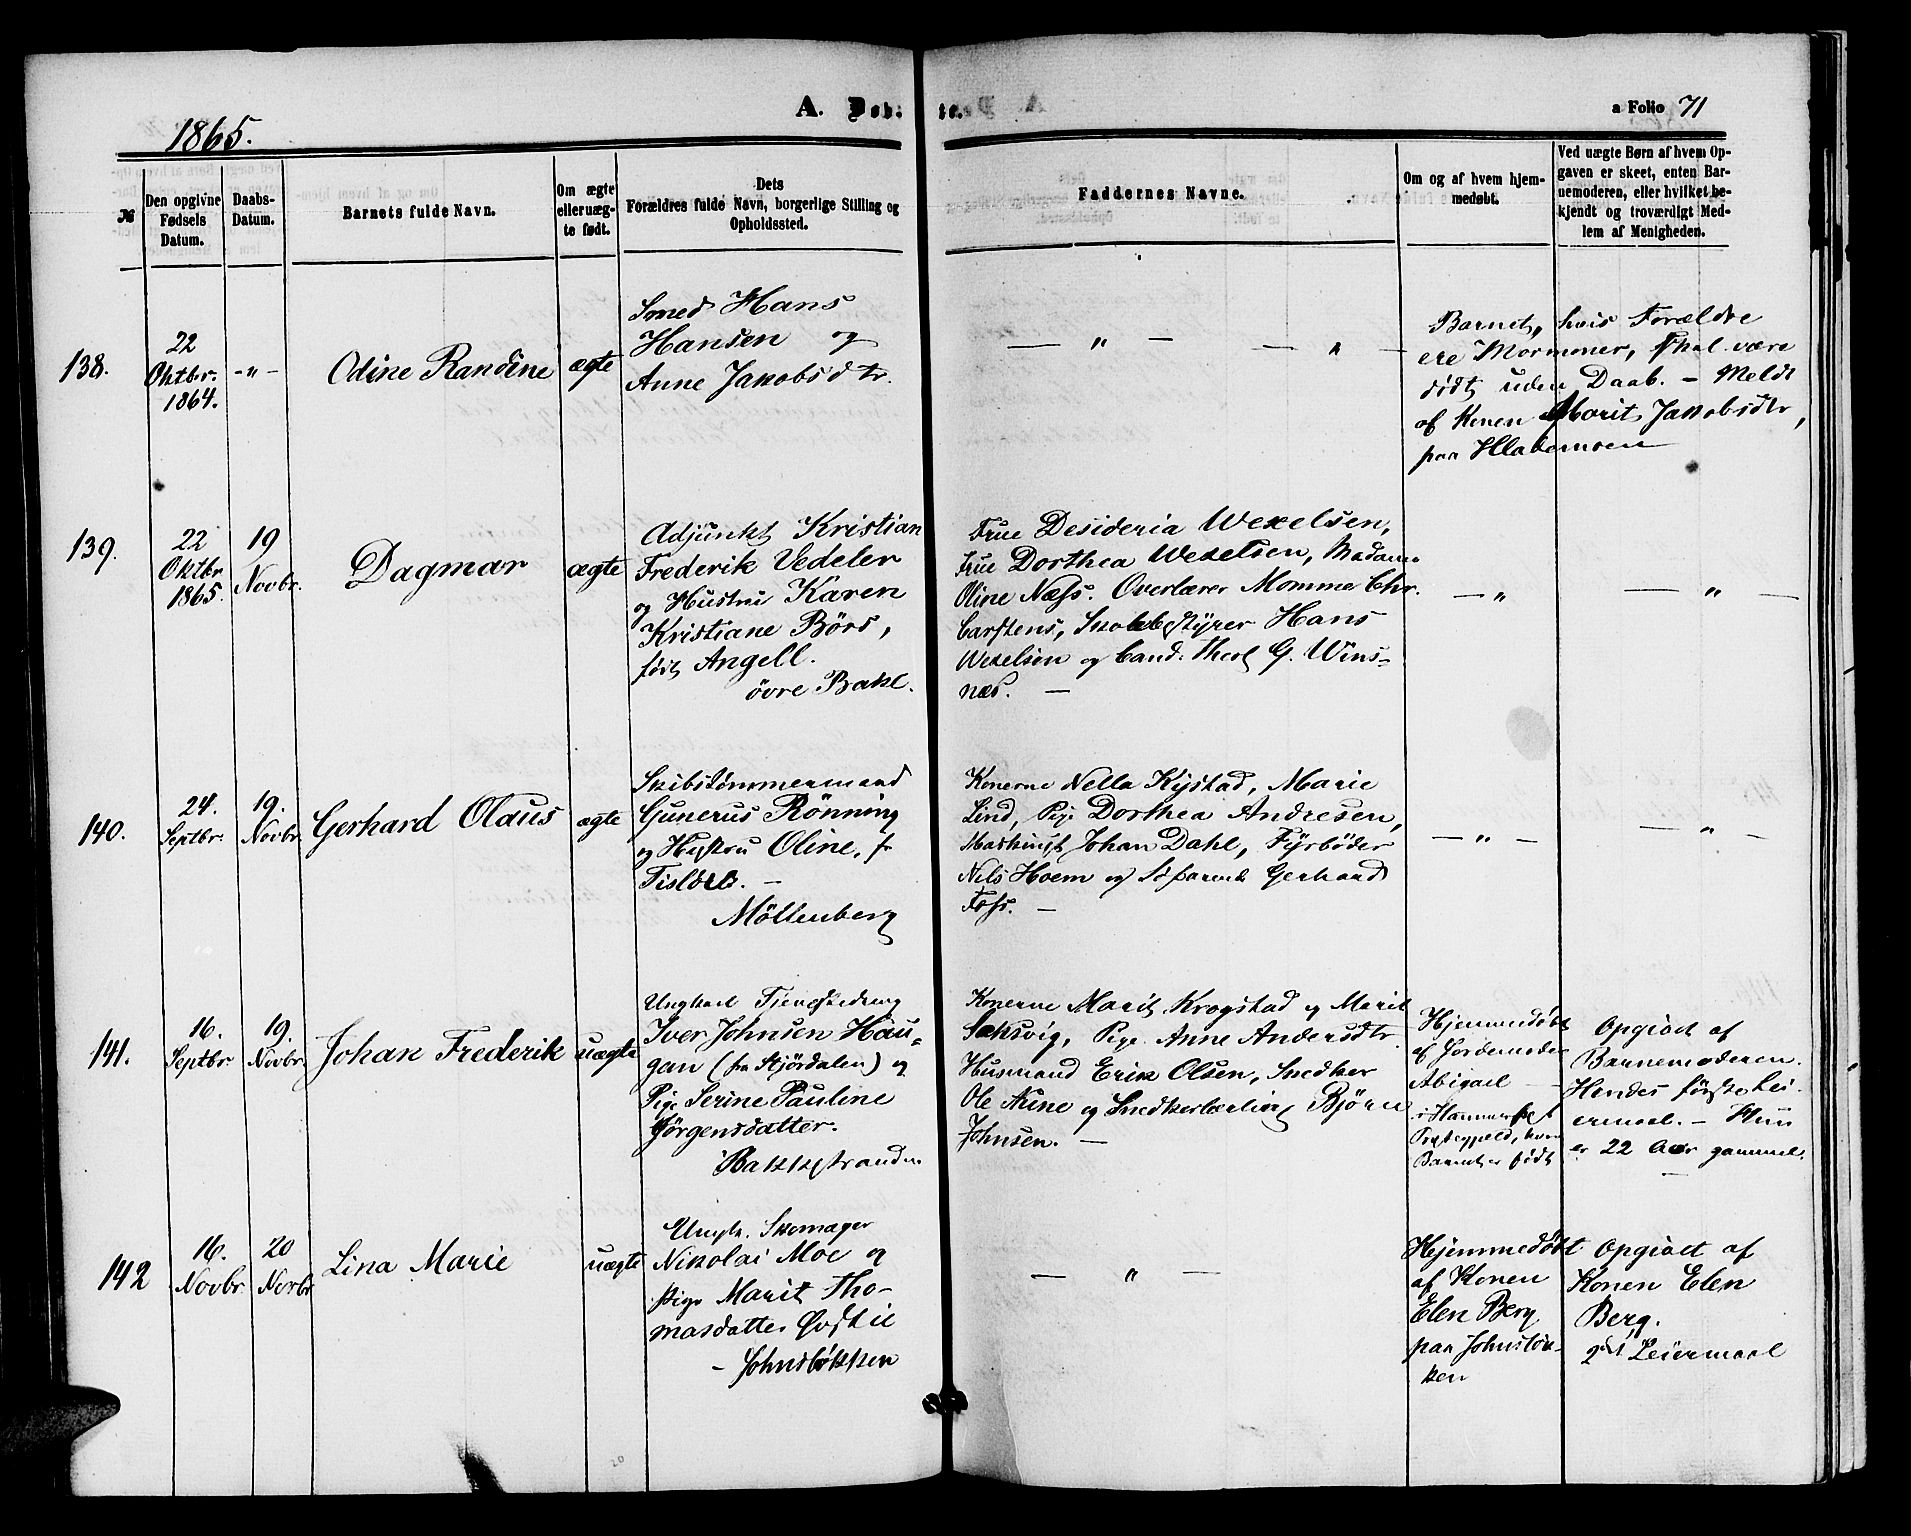 1865.
A. Døbte.
a Folio 71
№
Den opgivne
Fødsels
Datum.
Daabs-
Datum.
Barnets fulde Navn.
Om ægte
eller uæg-
te født.
Dets
Forældres fulde Navn, borgerlige Stilling og
Opholdssted.
Faddernes Navne.
Om og af hvem hjem-
medøbt.
Ved uægte Børn af hvem Op-
gaven er skeet, enten Bar-
nemoderen, eller hvilket be-
kjendt og troværdigt Med-
lem af Menigheden.
138.
22
Oktbr.
1864.
-„-
Odine Randine
ægte
Smed Hans
Hansen og
Anne Jakobsdtr.
— „ — — „ —
Barnet, hvis Forældre
ere Mormoner, skal være
død uden Daab. — Meldt
af Konen Marit Jakobsdtr,
paa Ilabemoen
139.
22
Oktbr
1865.
19
Novbr.
Dagmar
ægte
Adjunkt Kristian
Frederik Vedeler
og Hustru Karen
Kristiane Börs,
født Angell.
övre Bakl.
Frue Desideria Wexelsen,
Frue Dorthea Wexelsen, Madame
Oline Næss. Overlærer Momme Chr.
Carstens, Skolebestyrer Hans
Wexelsen og Cand. Theol G. Wins-
næs. —
— „
— „ —
140.
24.
Septbr.
19.
Novbr.
Gerhard Olaus
ægte
Skibstömmermand
Gunerus Rönning
og Hustru Oline, f
—
Möllenberg
Konerne Nella Kystad, Marie
Lind, Pige Dorthea Andresen,
Maskinist Johan Dahl, Fyrböder
Nils Hoem og Gerhard
Foss. —
— „ —
— „ —
141.
16.
Septbr.
19.
Novbr.
Johan Frederik
uægte
Ungkarl Tjenestedreng
Iver Johnsen Hau-
gan (fra Stjördalen) og
Pige Serine Pauline
Jörgensdatter.
Bakkstranden
Konerne Marit Krogstad og Marit
Saksvig, Pige Anne Andersdtr.
Husmand Erik Olsen, Snedker
Ole Aune og Snedkerlærling Björn
Johnsen. —
Hjemmedøbt
af Jordemoder
Abigael —
i Hammerfest
hvor
Barnet er født
Opgivet af
Barnemoderen.
Hendes første Lei-
ermaal. — Hun
er 22 Aar gammel.
142
16.
Novbr
20
Novbr
Lina Marie
uægte
Ungk. Skomager
Nikolai Moe og
Pige Marit Tho-
masdatter
— Johnsløkken
— „ —
Hjemmedøbt
af Konen
Elen Berg
paa Johnsløk-
ken
Opgivet af
Konen Elen
Berg.
2det Leiermaal